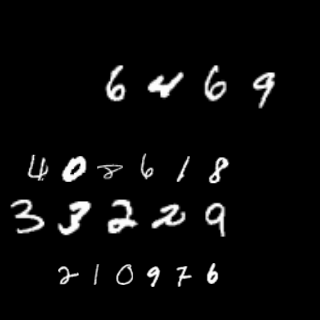 6469
408618
33229
210976